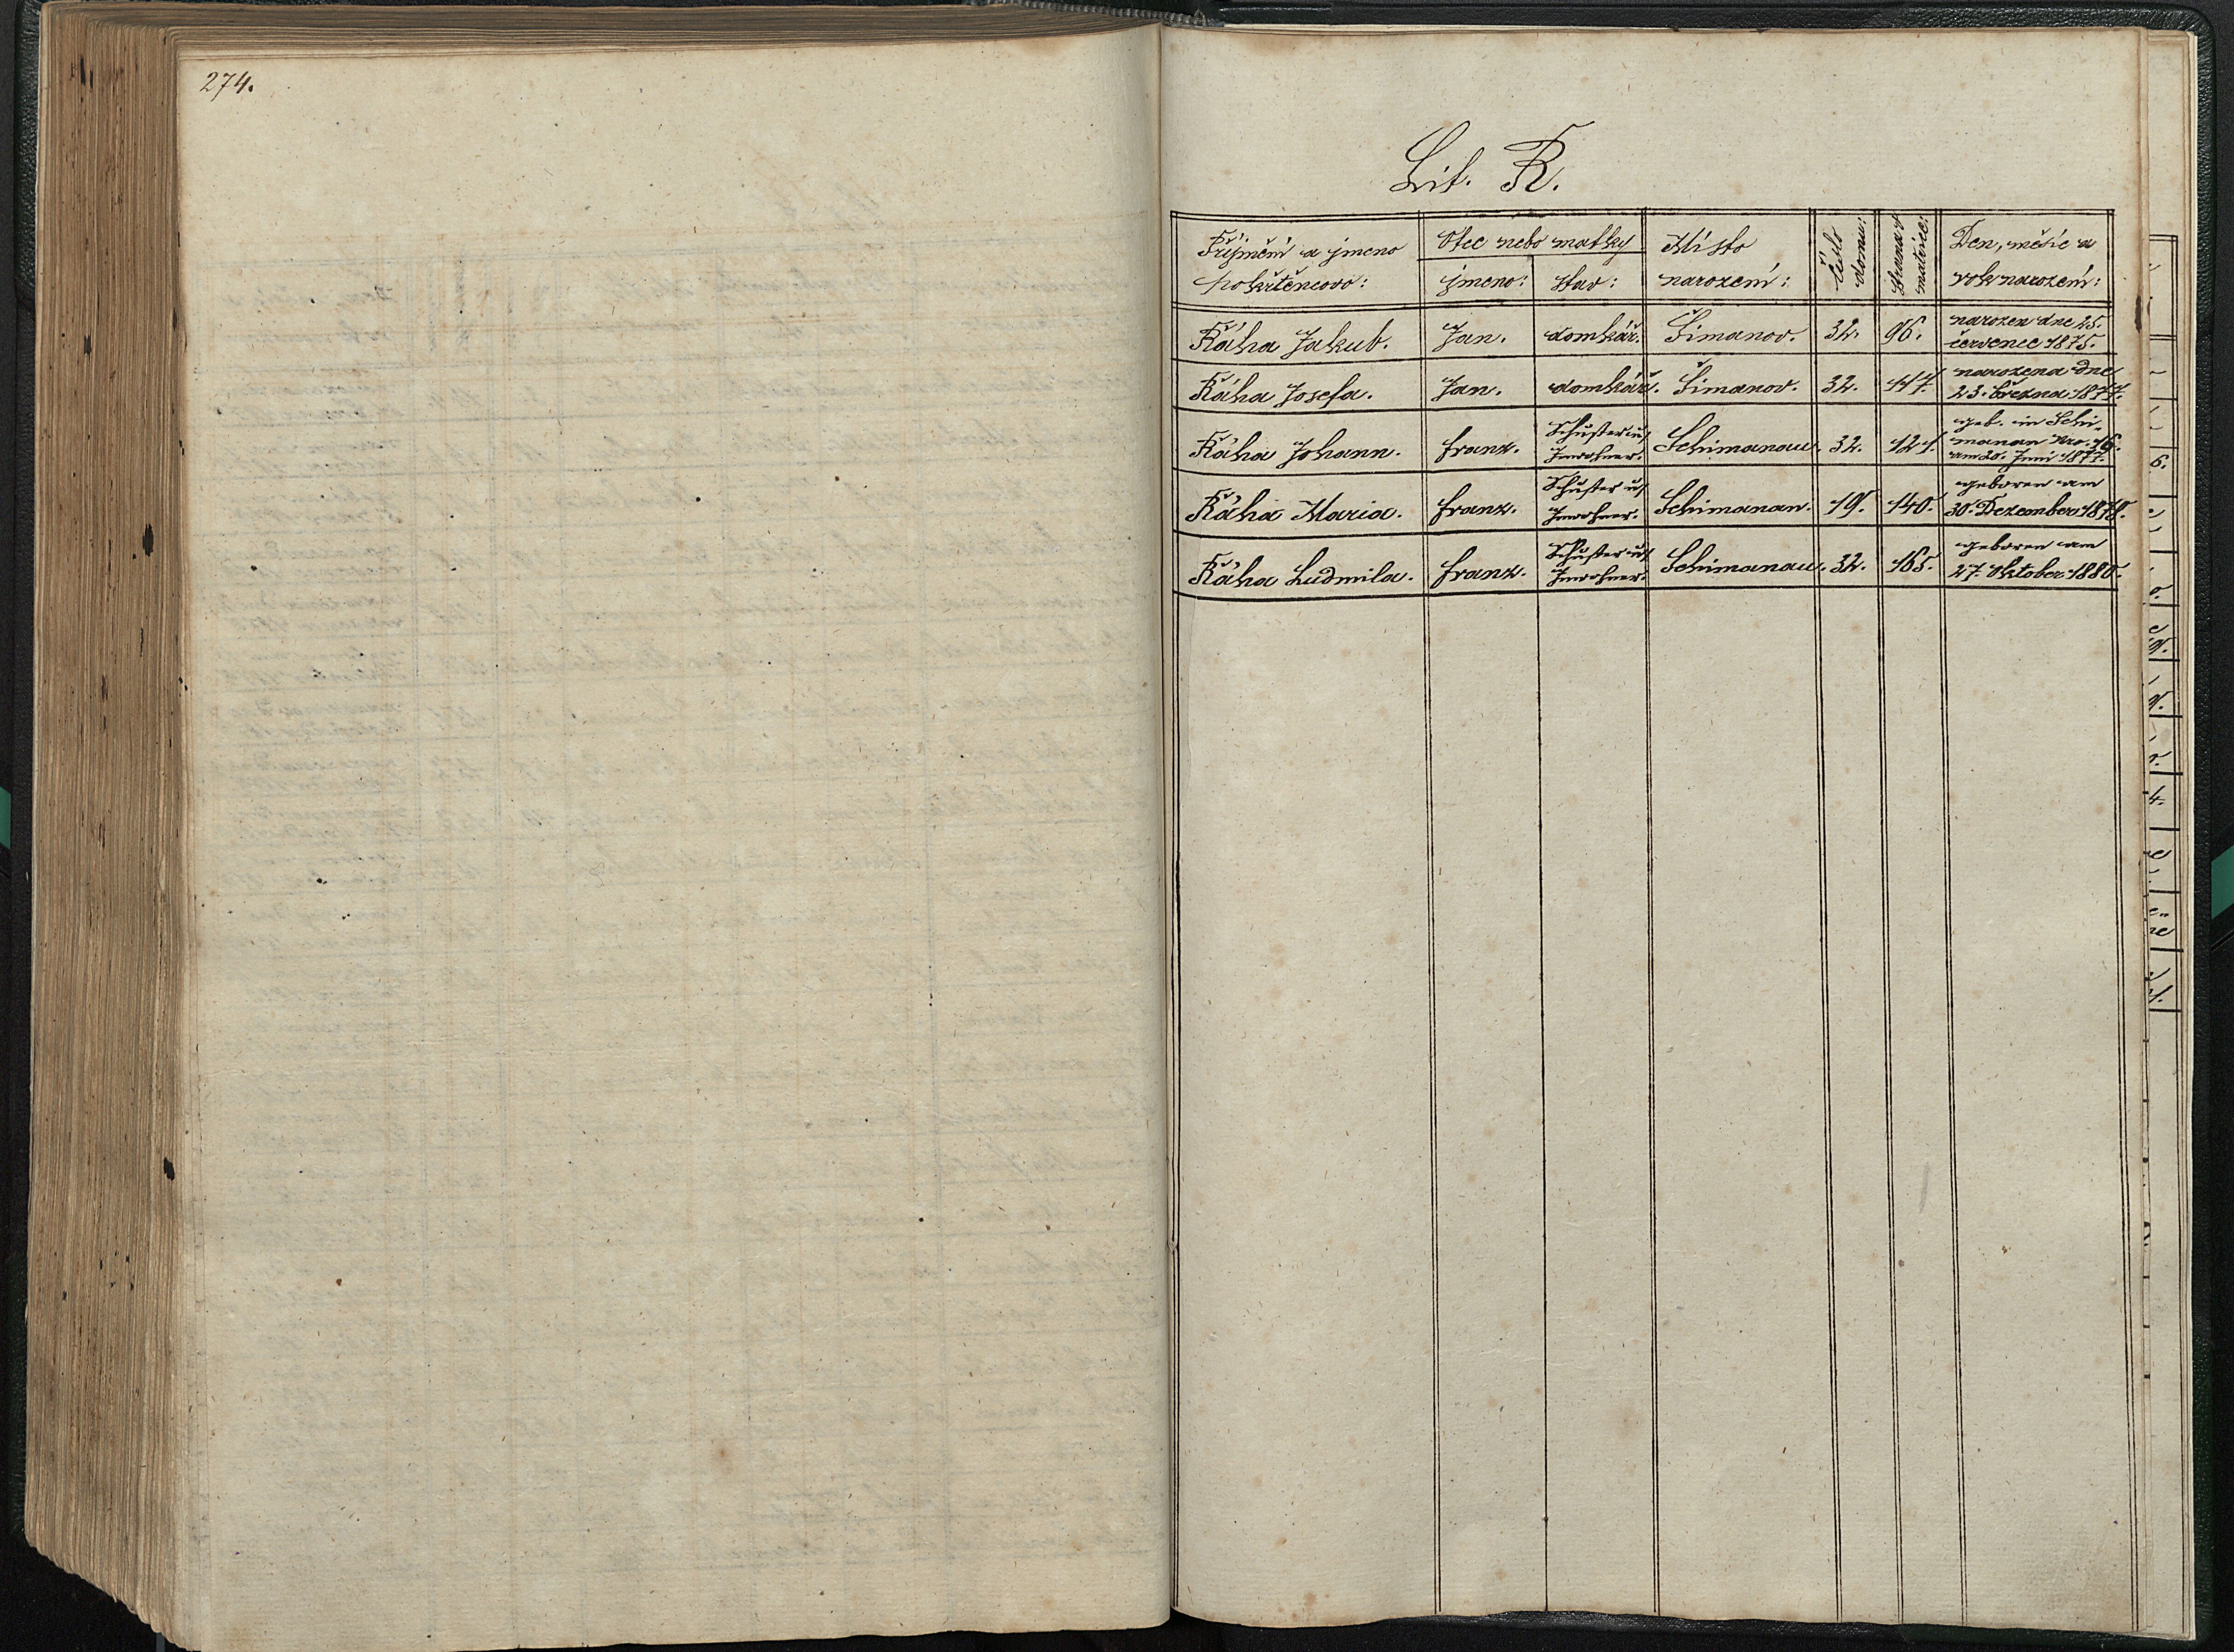 274.
Lit. Ř.
Příjmění a jmeno
pokřtěncovo:
Otec nebo matky
jmeno: stav:
Místo
narození:
číslo
domu:
Strana
matrice:
Den, měsíc a
rok narození:
Řáha Jakub. Jan. domkář. Šimanov. 32. 96. narozen dne 25.
červenec 1875.
Řáha Josefa. Jan. domkář. Šimanov. 32. 117. narozena dne
23. března 1877.
Řáha Johann. Franz. Schuster u/ Inwohner. Schimanau. 32. 121. geb. in Schi-
manau Nro. 16.
am 20. Juni 1877.
Řáha Maria. Franz. Schuster u/ Inwohner. Schimanau. 19. 140. geboren am
30. Dezember 1878.
Řáha Ludmila. Franz. Schuster u/ Inwohner. Schimanau. 32. 165. geboren am
27. Oktober 1880.